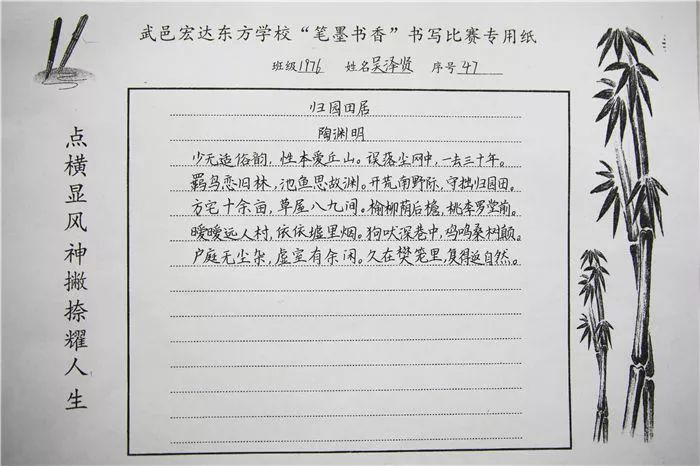 武邑宏达东方学校“笔墨书香”书写比赛专用纸
班级1976 姓名吴泽贤 序号47
点横显风神撇捺耀人生
归园田居
陶渊明
少无造俗韵，性本爱丘山。误落尘网中，一去三十年。
羁鸟恋旧林，池鱼思故渊。开荒南野际，守拙归园田。
方宅十余亩，草屋八九间。榆柳荫后檐，桃李罗堂前。
暧暧远人村，依依墟里烟。狗吠深巷中，鸣鸣桑树颠。
户庭无尘杂，虚室有余闲。久在樊笼里，复得返自然。